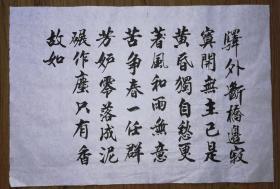 驛外斷橋邊寂
寞開無主已是
黄昏獨自愁更
著風和雨無意
苦爭春一任群
芳妒零落成泥
碾作塵只有香
故如